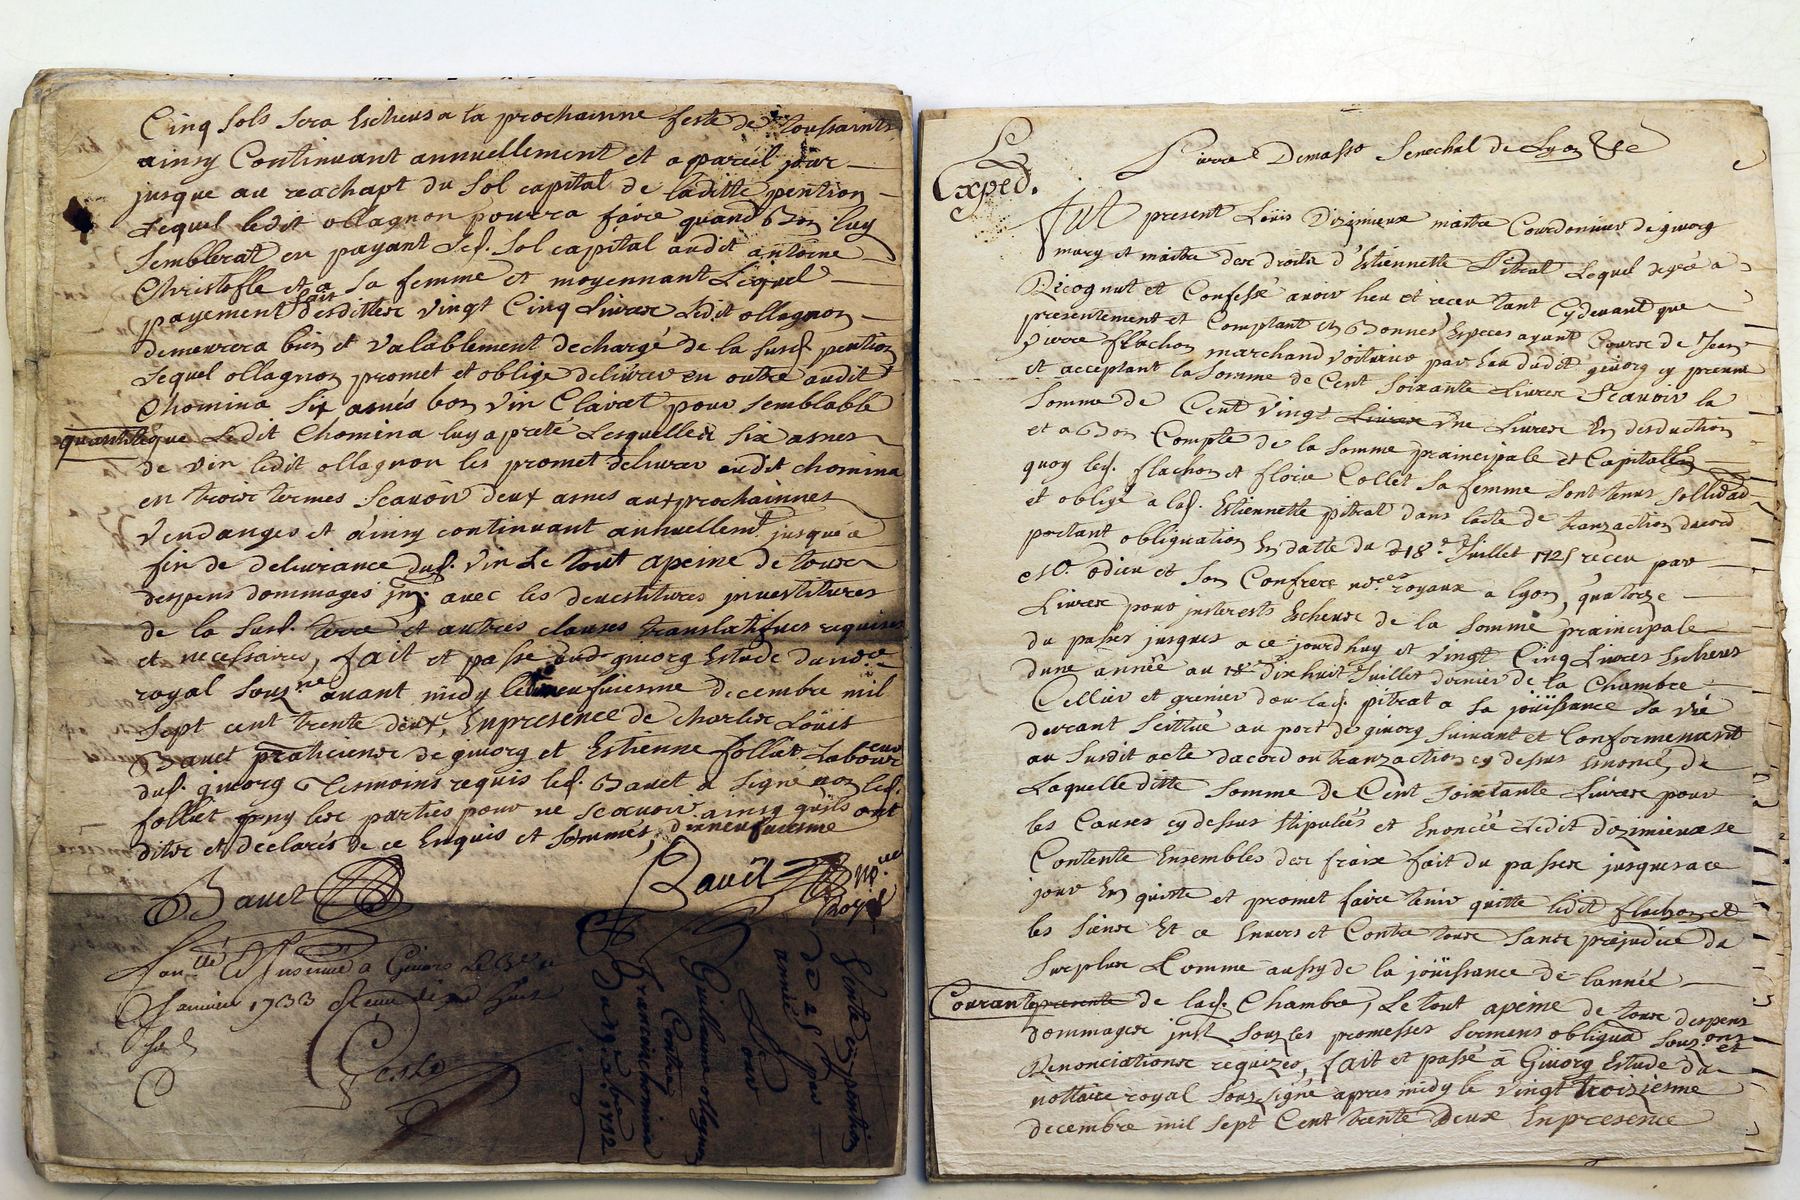 Cinq sols sera Escheus a la prochainne feste de toussaints
ainsy Continuant annuellement et a pareil jour
jusque au reachapt du sol capital de laditte pention
Lequel ledit ollagnon pourra faire quand Bon luy
semblerat en payant led. sol capital audit antoine
Christofle et a sa femme et moyennant Lequel
payement fait desdittes vingt Cinq Livres Ledit ollagnon
demeurera bien et valablement dechargé de la susd. pention
Lequel ollagnon promet et oblige delivrer en outre audit
Chomina six asnés bon vin Clairet pour semblable
quantité que Ledit Chomina luy a preté Lesquelles six asnes
de vin ledit ollagnon les promet delivrer audit chomina
en trois termes Scavoir deux asnes aux prochainnes
vendanges et ainsy continuant annuellemt. jusque a
fin de delivrance dud. vin Le tout apeine de tous
despens dommages jnt. avec les devestitures jnvestitures
de la susd. terre et autres clauses translatifves requises
et necessaires, fait et passé aud. givorg Estude du no.re
royal souz.né avant midy le dixneufviesme decembre mil
sept cent trente deux, En presence de Charles Loüis
Bavet praticiens de givorg et Estienne folliet Laboureur
dud. givorg Tesmoins requis led. Bavet a signé non led.
folliet gny les parties pour ne scavoir ainsy qu'ils ont
dits et declarés de ce Enquis et sommés, dixneufviesme
Bavet
Bavet no.re
Royal
Con.llé & Jnsinué a Givors Le 3e.
Janvier 1733 Receu
Vente & pention
de 25s par
année
Pour
Guillaume ollagnon
Contre
francois chomina
Du 19e xbre 1732
Exped.
Pierre Demasso Senechal de Lyon &c
Fut present Loüis Dizimieux maitre Courdonnier de givorg
mary et maitre des droits d'Estiennette Pitrat Lequel degré a
Recognut et Confessé avoir heu et receu tant Cydevant que
presentement et Comptant en Bonnes Especes ayant Cours de Jean
Pierre flachon marchand voiturier par heau dudit givorg cy present
et acceptant la somme de Cent soixante Livres Scavoir la
somme de Cent vingt Livres une Livres En desduction
et a Bon Compte de la somme prainicipale et Capitalle
quoy led. flachon et floirie Collet sa femme sont tenus sollidad
et obligé a lad. Estiennette pitrat dans lacte de tranzaction dacord
portant obliguation En datte du 18e. Juillet 1725 receu par
Me. odieu et son Confrere no.res royaux a lyon, quatorze
Livres pour jnterests Escheus de la somme prainicipale
du passé jusques a ce jourdhuy et vingt Cinq Livres Escheus
dune année au 18e dixhuit Juillet dernier de la Chambre
Cellier et grenier dont lad. pitrat a sa joüissance sa vie
durant scitué au port de givorg suivant et Conformement
au susdit acte dacord ou tranzaction cy dessus Enoncé, de
Laquelle ditte somme de Cent soixtante Livres pour
les Causes cy dessus stipulés et Enoncé Ledit dizimieux se
Contente Ensembles des fraix fait du passé jusques a ce
jour En quitte et promet faire tenir quitte ledit flachon et
les siens Et ce Envers et Contre tous sans prejudice du
surplus Comme aussy de la joüissance de lannée
Courante presente de lad. Chambre, Le tout apeine de tous despens
dommages jnt. sous les promesses sermens obligua. sous.ons et
Renonciations requizes, fait et passé à Givorg Estude du
nottaire royal souzsigné apres midy le vingt troisiesme
decembre mil sept Cent trente deux En presence